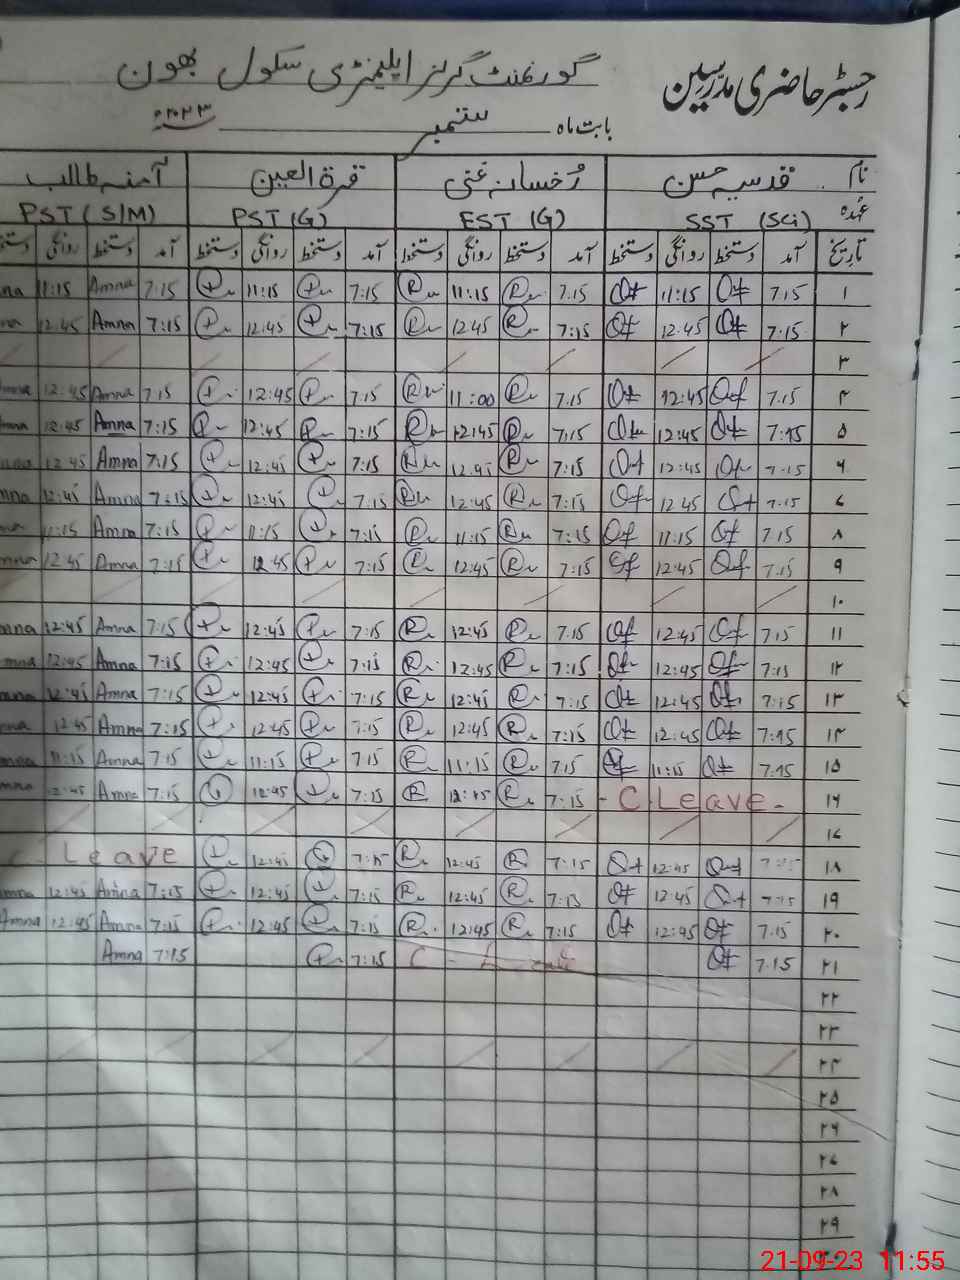 رجسٹر حاضری مدرسین
گورنمنٹ گرلز ایلیمنٹری سکول بھون
بابت ماہ ستمبر ۲۰۲۳ء
نام قدسیہ حسن رخسانہ غنی قرة العین آمنہ طالب
عہدہ SST (Sci) EST (G) PST (G) PST (S/M)
تاریخ آمد دستخط روانگی دستخط آمد دستخط روانگی دستخط آمد دستخط روانگی دستخط آمد دستخط روانگی دستخط
۱ 7.15 11:15 7.15 R 11:15 7:15 11:15 7:15 Amna 11:15 mna
۲ 7:15 12.45 7:15 R 12.45 7:15 12:45 7:15 Amna 12.45 na
۳
۴ 7.15 12:45 7.15 R 11:00 7.15 12:45 7.15 Amna 12:45 mna
۵ 7:15 12:45 7:15 R 12:45 7:15 12:45 7:15 Amna 12:45 mna
۶ 7:15 12:45 7:15 R 12.45 7:15 12:45 7:15 Amna 12:45 mna
۷ 7:15 12.45 7:15 R 12:45 7.15 12:45 7:15 Amna 12:45 mna
۸ 7.15 11:15 7:15 R 11:15 7:15 11:15 7:15 Amna 11:15 mna
۹ 7.15 12:45 7:15 R 12:45 7:15 12.45 7:15 Amna 12:45 mna
۱۰
۱۱ 7:15 12:45 7:15 R 12:45 7:15 12:45 7:15 Amna 12:45 mna
۱۲ 7:15 12:45 7:15 R 12:45 7:15 12:45 7:15 Amna 12:45 mna
۱۳ 7:15 12:45 7:15 R 12:45 7:15 12:45 7:15 Amna 12:45 mna
۱۴ 7:15 12:45 7:15 R 12:45 7:15 12:45 7:15 Amna 12:45 na
۱۵ 7:15 11:15 7.15 R 11:15 7.15 11:15 7.15 Amna 11:15 mna
۱۶ C. Leave 7:15 R 12:45 7:15 12:45 7:15 Amna 12:45 mna
۱۷
۱۸ 7:15 12:45 7:15 R 12:45 7:15 12:45 C Leave
۱۹ 7:15 12:45 7:15 R 12:45 7:15 12:45 7:15 Amna 12:45 mna
۲۰ 7.15 12:45 7:15 R 12:45 7:15 12:45 7:15 Amna 12:45 Amna
۲۱ 7.15 C - Leave 7:15 7:15 Amna
۲۲
۲۳
۲۴
۲۵
۲۶
۲۷
۲۸
۲۹
21-09-23 11:55